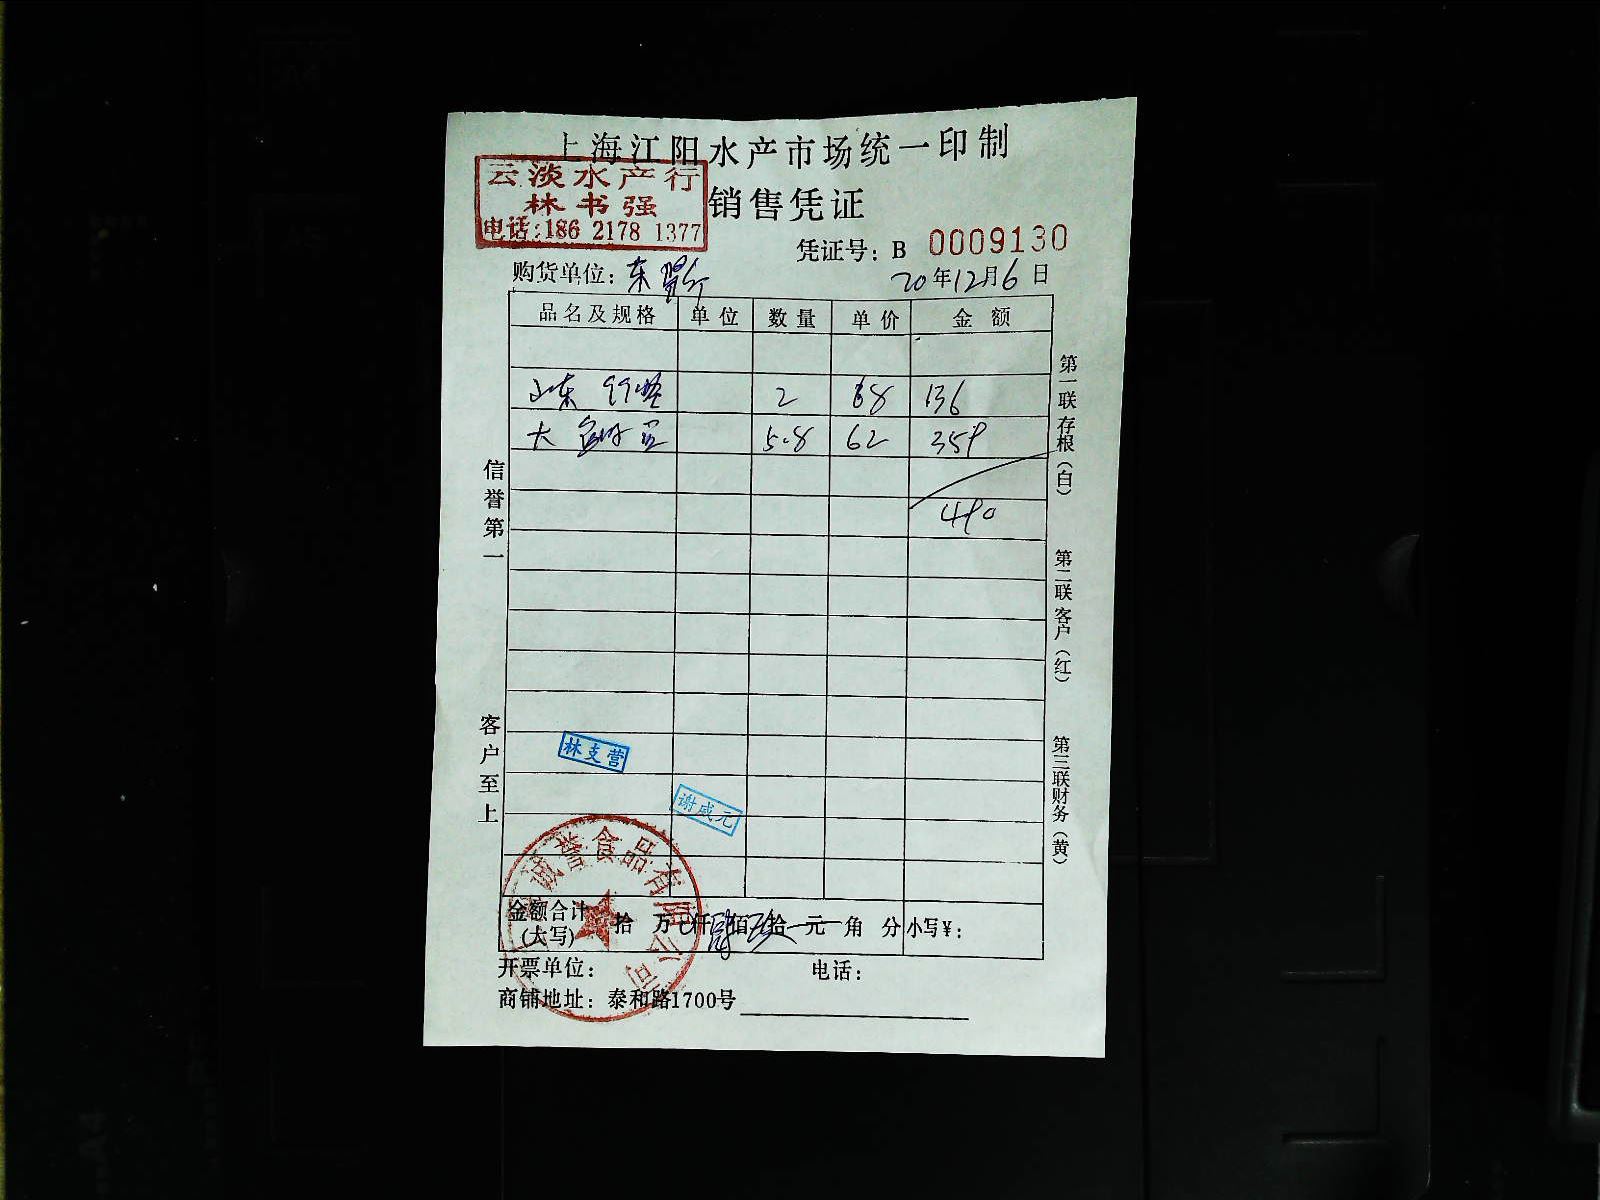 上海江阳水产市场统一印制
云淡水产行
林书强
电话:186 2178 1377
销售凭证
凭证号: B 0009130
购货单位: 东
20年12月6日
品名及规格 单位 数量 单价 金额
山东 2 68 136
大 5.8 62 359
490
信誉第一
客户至上
第一联存根(白)
第二联客户(红)
第三联财务(黄)
林支营
谢成元
诚誉食品有限公司
金额合计(大写) 拾 万 仟 佰 拾 元 角 分 小写¥:
开票单位: 电话:
商铺地址: 泰和路1700号